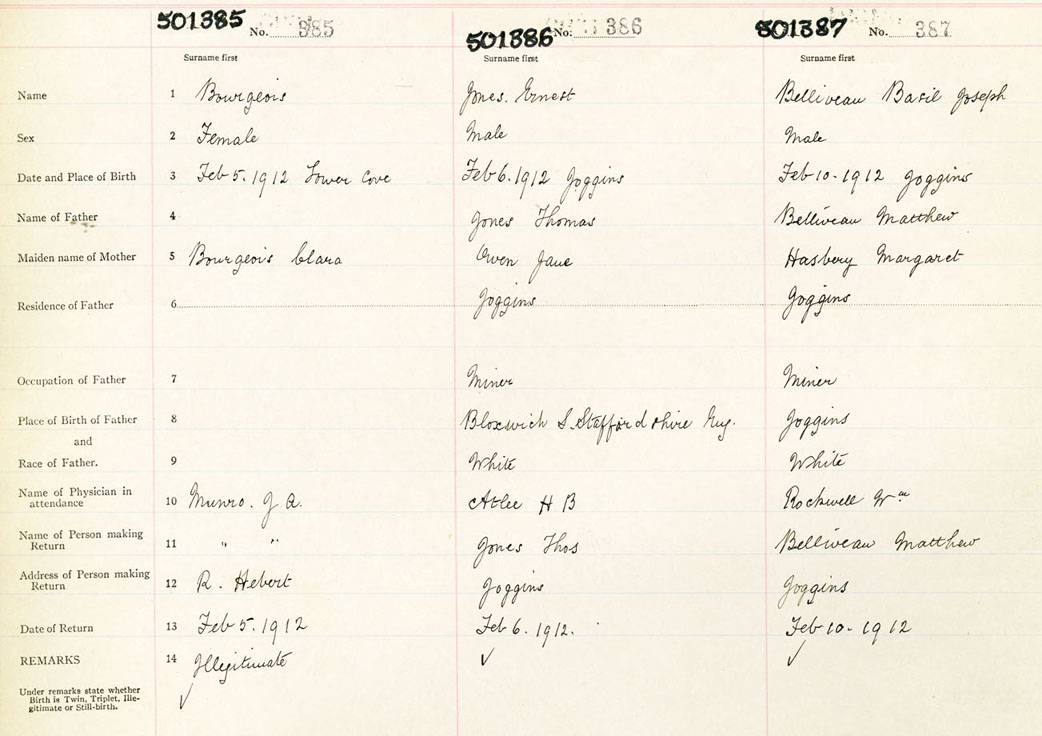 501385 No. 385 501386 No. 386 501387 No. 387
Surname first Surname first Surname first
Name 1 Bourgeois Jones. Ernest Belliveau Basil Joseph
Sex 2 Female Male Male
Date and Place of Birth 3 Feb 5. 1912 Lower Cove Feb 6. 1912 Joggins Feb 10 - 1912 Joggins
Name of Father 4 Jones Thomas Belliveau Matthew
Maiden name of Mother 5 Bourgeois Clara Owen Jane Hasbery Margaret
Residence of Father 6 Joggins Joggins
Occupation of Father 7 Miner Miner
Place of Birth of Father 8 Bloxwich S. Staffordshire Eng. Joggins
and
Race of Father. 9 White White
Name of Physician in
attendance 10 Munro. J A. Atlee H B Rockwell Wm
Name of Person making
Return 11 " " Jones Thos Belliveau Matthew
Address of Person making
Return 12 R. Hebert Joggins Joggins
Date of Return 13 Feb 5. 1912 Feb 6. 1912. Feb 10 - 1912
REMARKS 14 Illegitimate ✓ ✓
Under remarks state whether
Birth is Twin, Triplet, Ille-
gitimate or Still-birth. ✓